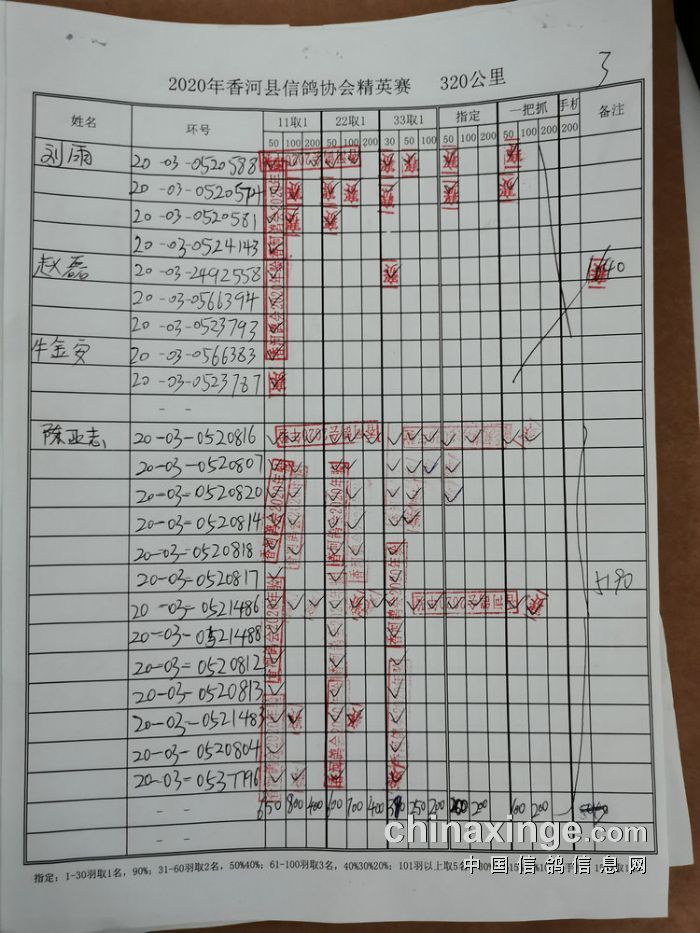 3
2020年香河县信鸽协会精英赛 320公里
姓名 环号 11取1 22取1 33取1 指定 一把抓 手机 备注
50 100 200 50 100 200 30 50 100 50 100 200 50 100 200 200
刘雨 20-03-0520588
20-03-0520574
20-03-0520581
20-03-0524143
赵磊 20-03-2492558
20-03-0566394
20-03-0523793
牛金安 20-03-0566383
20-03-0523787
- -
陈亚志 20-03-0520816
20-03-0520807
20-03-0520820
20-03-0520814
20-03-0520818
20-03-0520817
20-03-0521486
20-03-0521488
20-03-0520812
20-03-0520813
20-03-0521483
20-03-0520804
20-03-0537796
- - 650 800 400 600 700 400 390 250 200 200 200 600 200
- -
chinaxinge.com
中国信鸽信息网
指定：1-30羽取1名，90%；31-60羽取2名，50%40%；61-100羽取3名，40%30%20%；101羽以上取5名